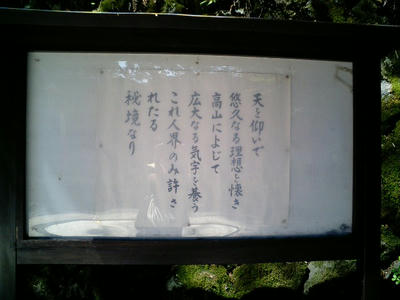 天を仰いで
悠久なる理想を懐き
高山によじて
広大なる気宇を養う
これ人界のみ許さ
れたる
秘境なり